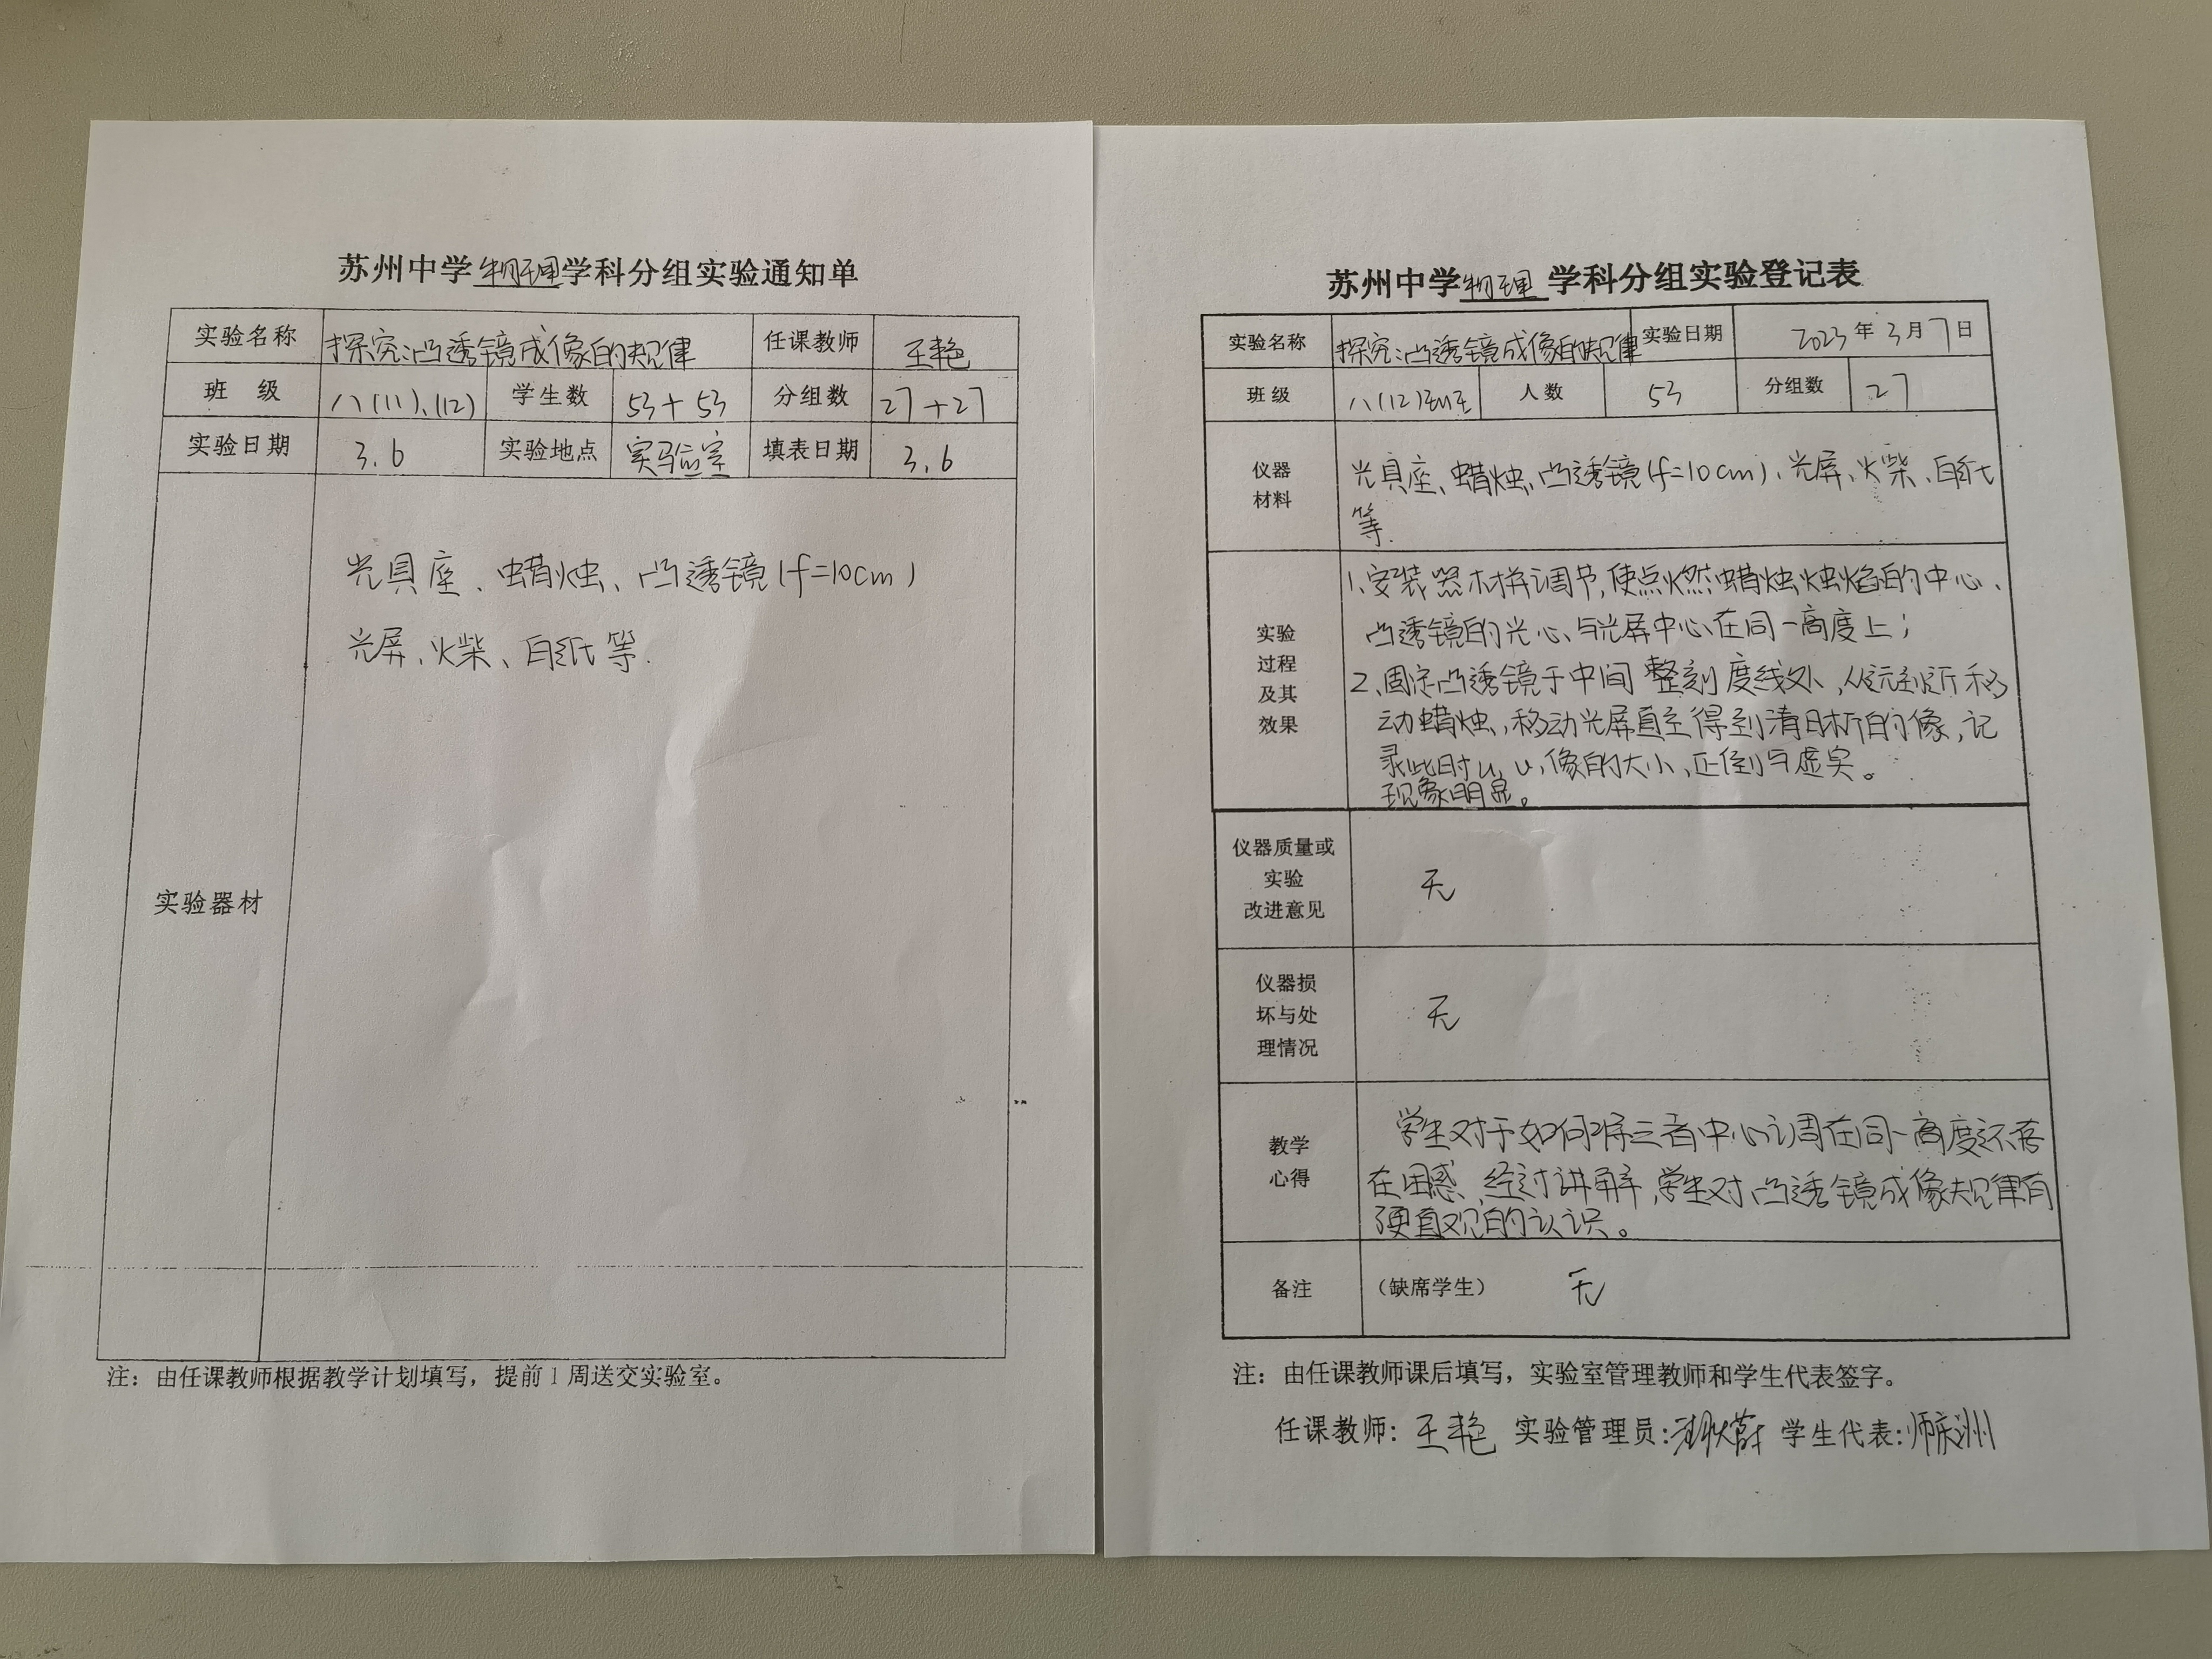 苏州中学物理学科分组实验通知单
实验名称 探究:凸透镜成像的规律 任课教师 王艳
班 级 八(11)、(12) 学生数 53+53 分组数 27+27
实验日期 3.6 实验地点 实验室 填表日期 3.6
实验器材
光具座、蜡烛、凸透镜(f=10cm)
光屏、火柴、白纸等.
注：由任课教师根据教学计划填写，提前1周送交实验室。
苏州中学物理学科分组实验登记表
实验名称 探究:凸透镜成像的规律 实验日期 2023年3月7日
班级 八(12)班 人数 53 分组数 27
仪器
材料
光具座、蜡烛、凸透镜(f=10cm)、光屏、火柴、白纸
等.
实验
过程
及其
效果
1、安装器材并调节,使点燃蜡烛烛焰的中心、
凸透镜的光心、与光屏中心在同一高度上；
2、固定凸透镜于中间整刻度线处,从远到近移
动蜡烛,移动光屏直至得到清晰的像,记
录此时u,υ,像的大小、正倒与虚实。
现象明显。
仪器质量或
实验
改进意见
无
仪器损
坏与处
理情况
无
教学
心得
学生对于如何将三者中心调在同一高度还存
在困惑,经过讲解,学生对凸透镜成像规律有
了更直观的认识。
备注 （缺席学生） 无
注：由任课教师课后填写，实验室管理教师和学生代表签字。
任课教师: 王艳 实验管理员: 学生代表:师庆洲